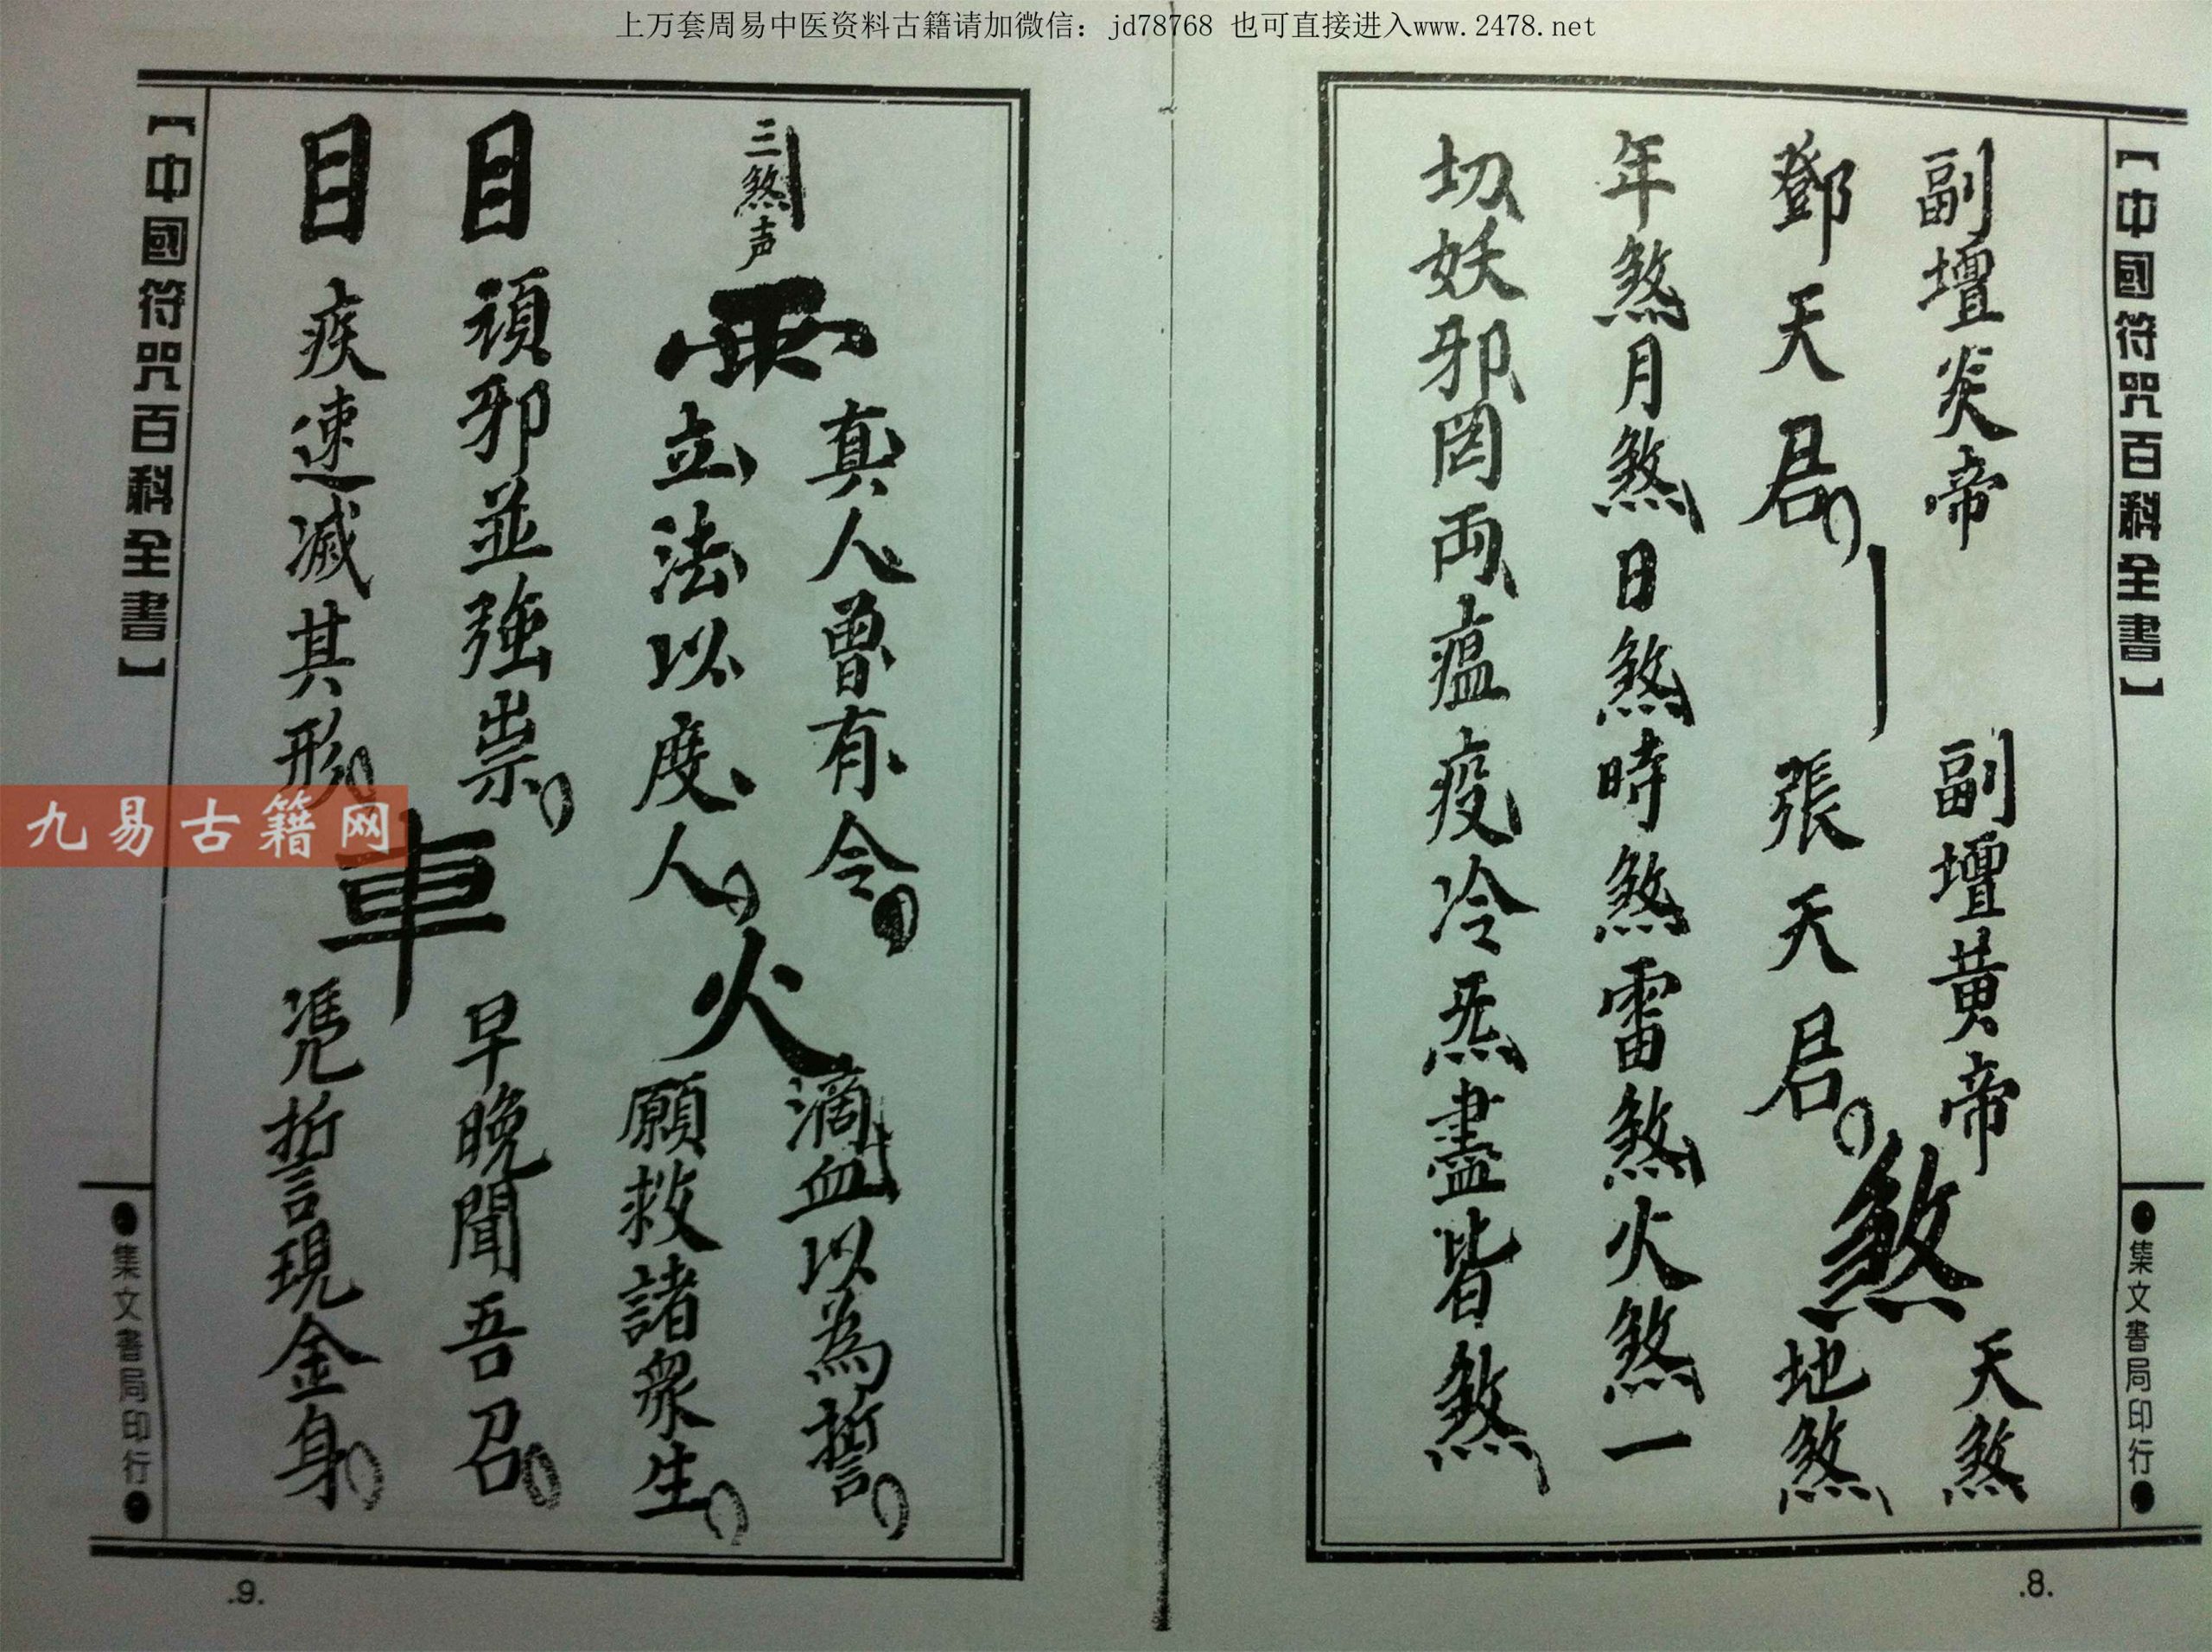 上万套周易中医资料古籍请加微信：jd78768 也可直接进入www.2478.net
【中國符咒百科全書】
●集文書局印行●
副壇炎帝 副壇黃帝
鄧天君 張天君
煞
天煞
地煞
年煞月煞日煞時煞雷煞火煞一
切妖邪罔両瘟疫冷炁盡皆煞
.8.
三煞声
真人曾有令
立法以度人
火
滴血以為誓
願救諸眾生
目 頑邪並強祟
目 疾速滅其形
車
早晚聞吾召
凴誓現金身
【中國符咒百科全書】
●集文書局印行●
.9.
九易古籍网